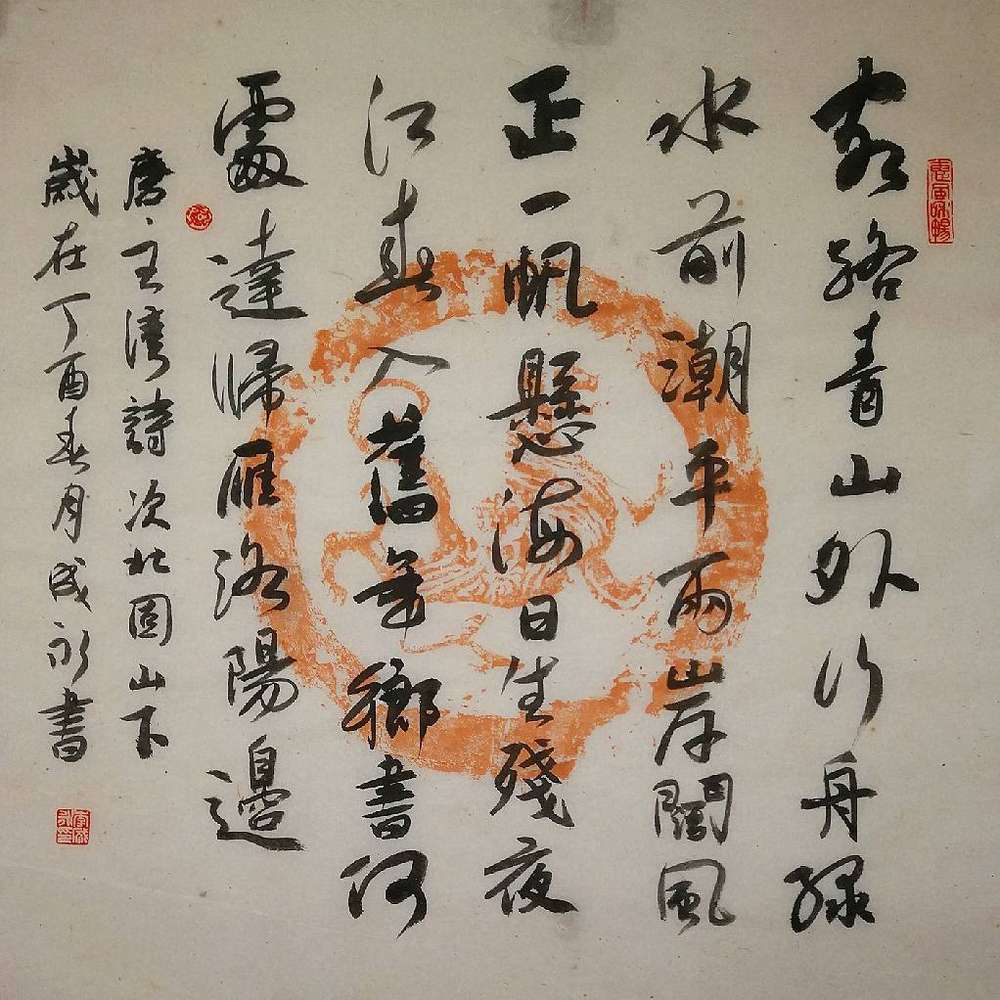 客路青山外行舟綠
水前潮平兩岸闊風
正一帆懸海日生殘夜
江春入舊年鄉書何
處達歸雁洛陽邊
唐王灣詩次北固山下
歲在丁酉春月成永書
惠風和暢